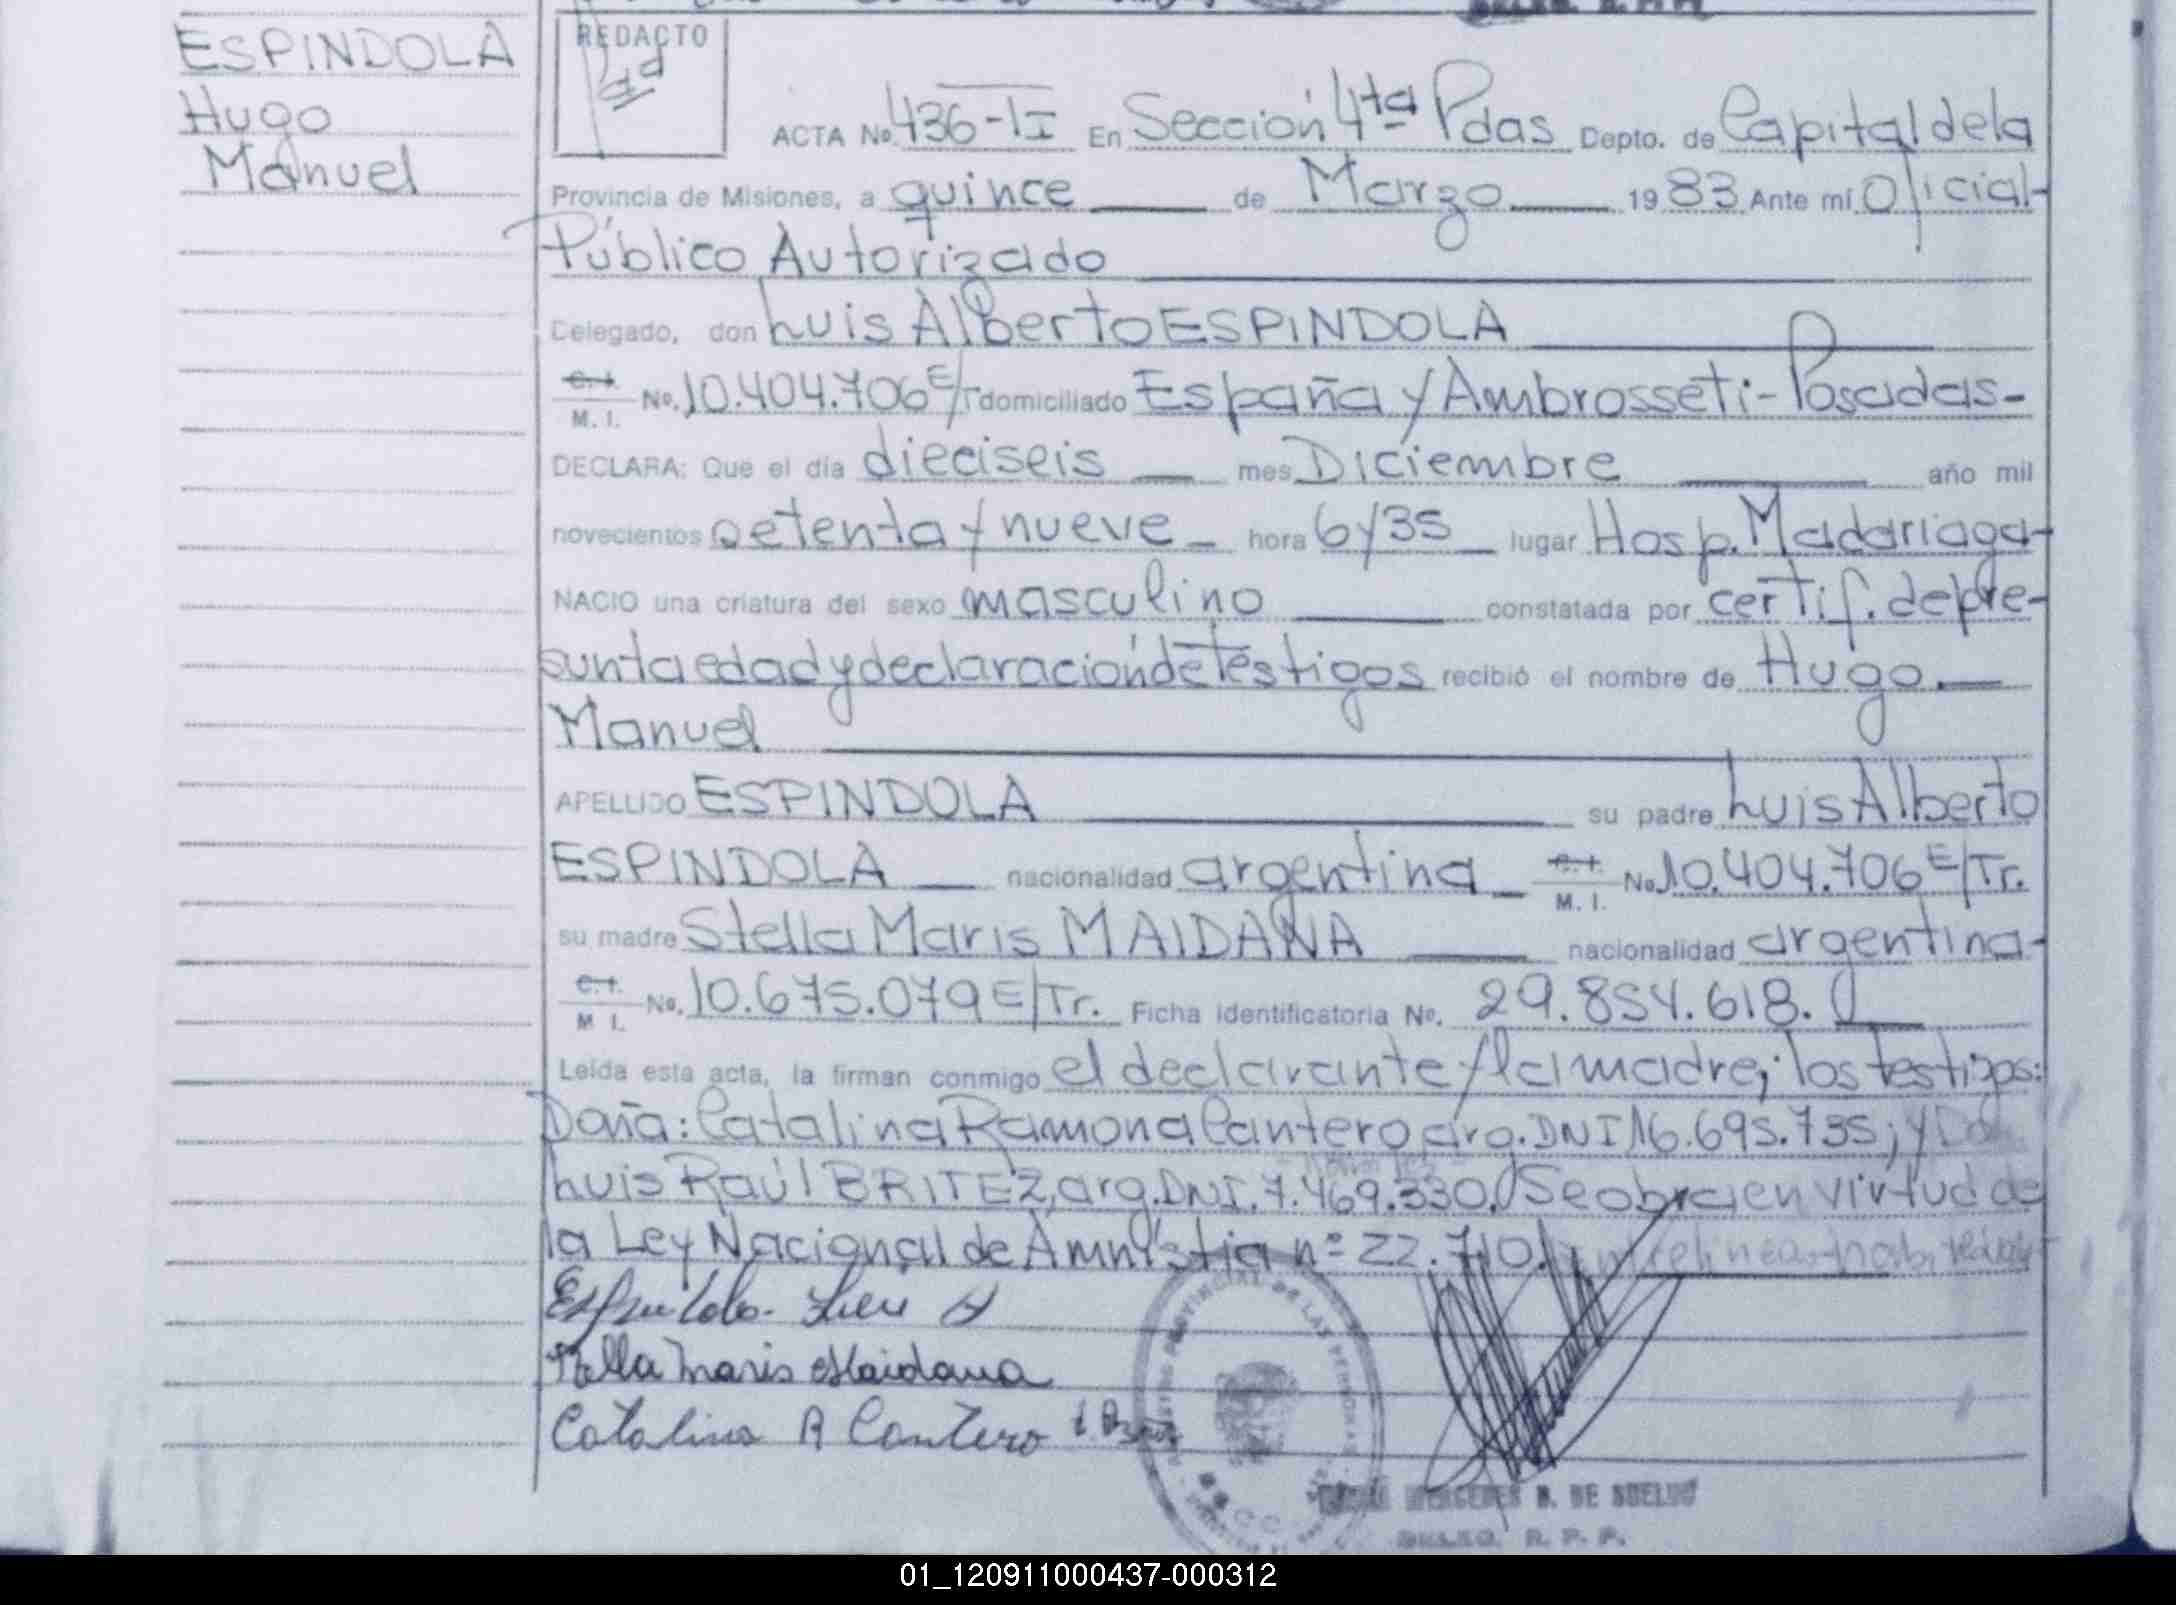 ESPINDOLA
Hugo
Manuel
REDACTO
ACTA No. 436-II En Sección 4ta Pdas Depto. de Capital de la
Provincia de Misiones, a quince de Marzo 1983 Ante mí Oficial-
Público Autorizado
Delegado, don Luis Alberto ESPINDOLA
C.I. M. I. No. 10.404.706 E/Tr domiciliado España y Ambrosseti - Posadas-
DECLARA: Que el día dieciseis mes Diciembre año mil
novecientos setenta y nueve hora 6 y 35 lugar Hosp. Madariaga-
NACIO una criatura del sexo masculino constatada por certif. de pre-
sunta edad y declaración de testigos recibió el nombre de Hugo
Manuel
APELLIDO ESPINDOLA su padre Luis Alberto
ESPINDOLA nacionalidad argentina C.I. M. I. No. 10.404.706 E/Tr.
su madre Stella Maris MAIDANA nacionalidad argentina-
C.I. M I. No. 10.675.079 E/Tr. Ficha identificatoria No. 29.854.618.
Leída esta acta, la firman conmigo el declarante y la madre; los testigos:
Doña: Catalina Ramona Cantero arg. DNI 16.695.735; y Don
Luis Raúl BRITEZ, arg. DNI. 7.469.330. Se obra en virtud de
la Ley Nacional de Amnistia nº 22.710.
Espindola Luis A
Stella Maris Maidana
Catalina R Cantero
PROVINCIAL DE LAS PERSONAS
N. DE SUELDO
R. P. P.
01_120911000437-000312